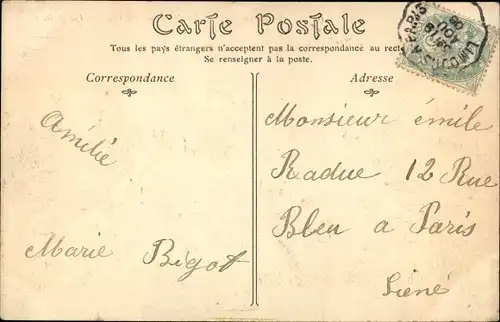 Carte Postale
Tous les pays étrangers n'acceptent pas la correspondance au recto
Se renseigner à la poste.
Correspondance
Adresse
Amilié
Marie Bigot
Monsieur émile
Radue 12 Rue
Bleu a Paris
Siené
PARIS